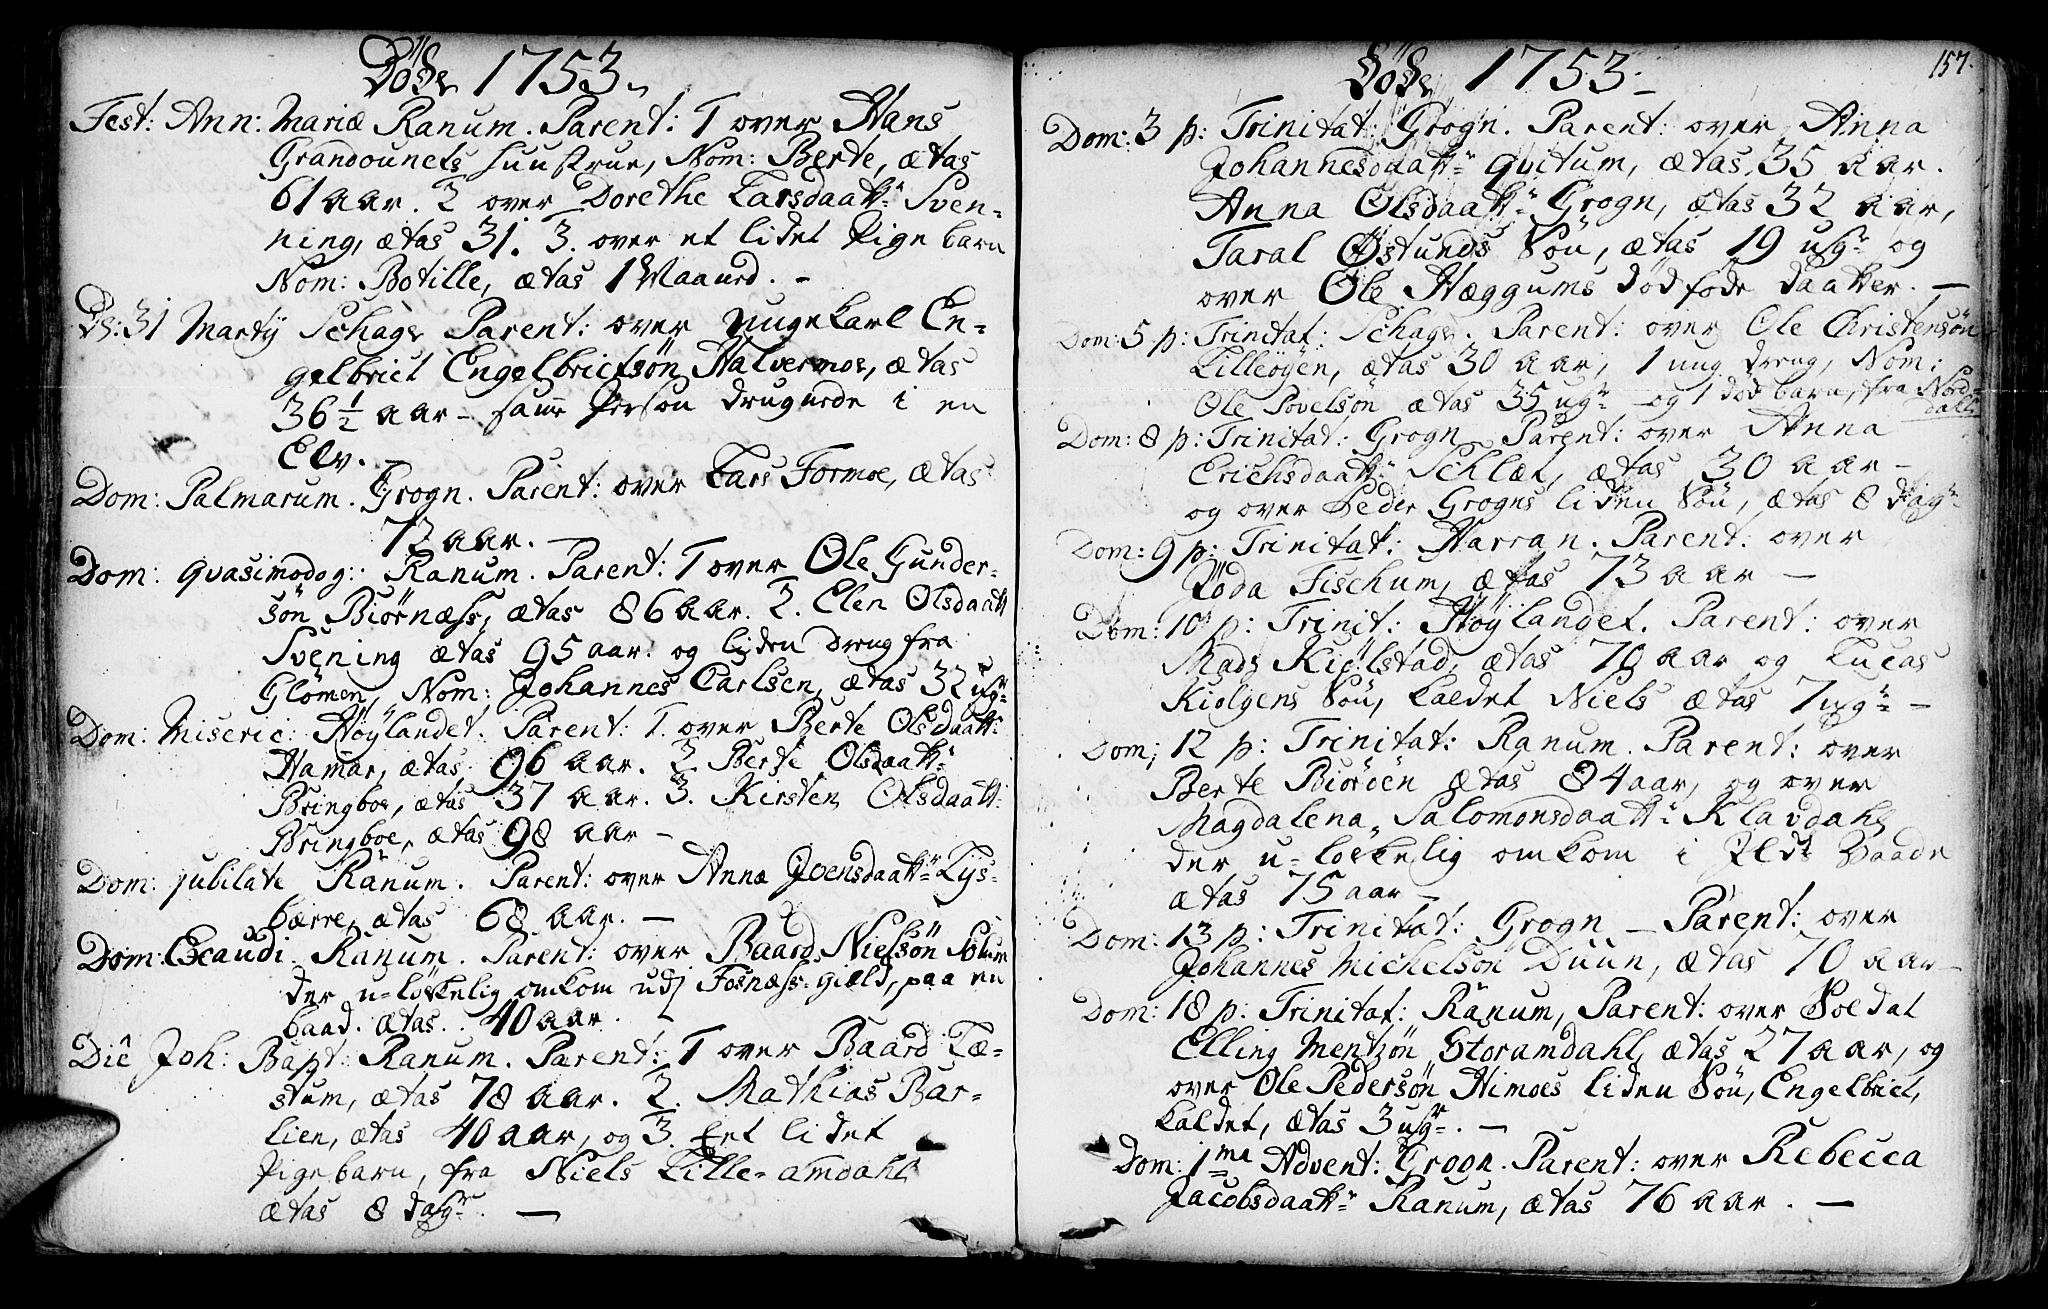 Døde 1753.
Fest: Ann: Mariæ Ranum. Parent: 1 over Hans
Grandounets huustrue, Nom: Berte, ætas
61 aar. 2 over Dorethe Larsdaattr Sven-
ning, ætas 31. 3. over et lidet Pige barn
Nom: Botille, ætas 1 Maaned. -
Ds: 31 Martij Schage Parent: over unge karl En-
gelbrict Engelbrictsøn Halvermoe, ætas
36 1/2 aar - samme Person druknede i en
Elv. -
Dom: Palmarum. Grogn. Parent: over Lars Formoe, ætas
72 aar. -
Dom: Qvasimodog: Ranum. Parent: 1 over Ole Gunder-
søn Biørnæss, ætas 86 aar. 2. Elen Olsdaattr
Svening ætas 95 aar. og liden dreng fra
Glømen, Nom: Johannes Carlsen, ætas 32 ugr
Dom: Miseric: Høylandet. Parent: 1. over Berte Olsdaattr
Hamar, ætas 96 aar. 2. Berte Olsdaattr
Bringboe, ætas 37 aar. 3. Kirsten Olsdaattr
Bringboe, ætas 98 aar -
Dom: jubilate Ranum. Parent: over Annæ Joensdaattr Lys-
bærre, ætas 68 aar. -
Dom: Exaudi. Ranum. Parent: over Baard Nielsøn Solum
der u-løkkelig omkom udj Fosnæss-gield, paa en
baad. ætas. 40 aar. -
Diê Joh: Bapt: Ranum. Parent: 1 over Baard Læ-
stum, ætas 78 aar. 2. Mathias Bar-
lien, ætas 40 aar, og 3. Eet lidet
Pigebarn, fra Niels Lille-amdahl
ætas 8 dagr. -
Døde 1753.
157.
Dom: 3 p: Trinitat: Grogn. Parent: over Anna
Johannesdaattr Qvetum, ætas 35 aar.
Anna Olsdaattr Grogn, ætas 32 aar,
Taral Østunds Søn, ætas 19 ugr og
over Ole Hæggums dødføde daatter. -
Dom: 5 p: Trinitat: Schage. Parent: over Ole Christensøn
Lilleøyen, ætas 30 aar, 1 ung dreng, Nom:
Ole Povelsøn ætas 35 ugr - og 1 død barn, fra Nord-
dahl
Dom: 8 p: Trinitat: Grogn Parent: over Anna
Erichsdaattr Schlæt, ætas 30 aar -
og over Peder Grogns liden Søn, ætas 8 dagr
Dom: 9 p: Trinitat: Harran. Parent: over
Joda Fischum, ætas 73 aar -
Dom: 10 p: Trinit: Høylandet. Parent: over
Mads Kiølstad, ætas 70 aar og Lucas
Kiølgens Søn, kaldet Niels ætas 7 ugr -
Dom; 12 p: Trinitat: Ranum. Parent: over
Berte Biørøen ætas 84 aar, og over
Magdalena Salomonsdaattr Klavdahl
der u-løkkelig omkom i Jlds Vaade
ætas 75 aar -
Dom: 13 p: Trinitat: Grogn - Parent: over
Johannes Michelsøn Duun, ætas 70 aar -
Dom: 18 p: Trinitat: Ranum, Parent: over Soldat
Elling Mentzøn Storamdahl, ætas 27 aar, og
over Ole Pedersøn Himoes liden Søn, Engelbrict,
kaldet, ætas 3 ugr. -
Dom: 1ma Advent: Grogn. Parent: over Rebecca
Jacobsdaattr Ranum, ætas 76 aar. -